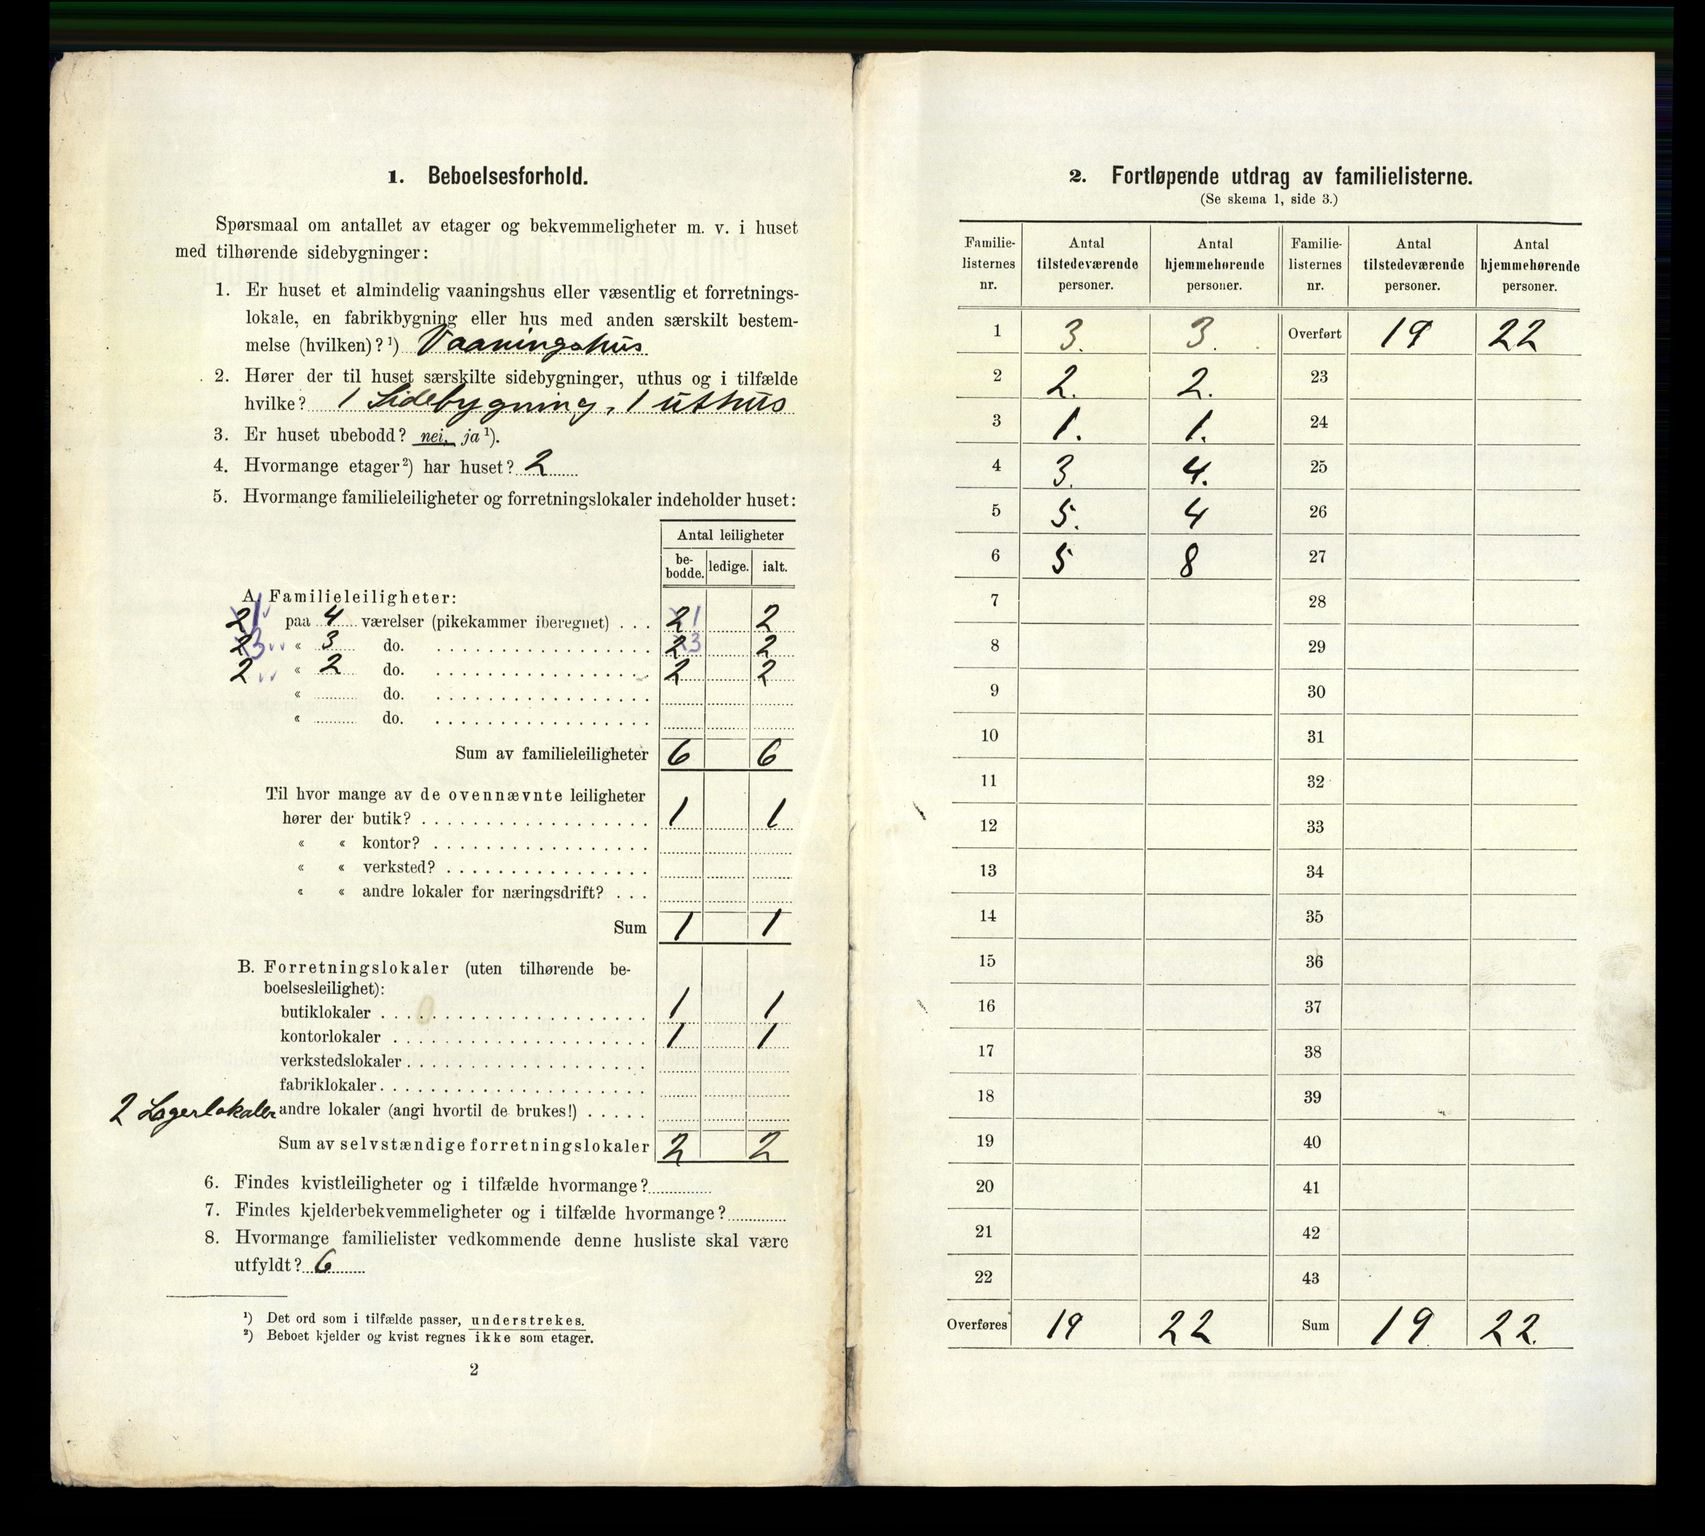 1. Beboelsesforhold.
Spørsmaal om antallet av etager og bekvemmeligheter m. v. i huset
med tilhørende sidebygninger:
1. Er huset et almindelig vaaningshus eller væsentlig et forretnings-
lokale, en fabrikbygning eller hus med anden særskilt bestem-
melse (hvilken)? ¹) Vaaningshus
2. Hører der til huset særskilte sidebygninger, uthus og i tilfælde
hvilke? 1 Sidebygning, 1 uthus
3. Er huset ubebodd? nei, ja ¹).
4. Hvormange etager ²) har huset? 2
5. Hvormange familieleiligheter og forretningslokaler indeholder huset:
Antal leiligheter
be-bodde. ledige. ialt.
A. Familieleiligheter:
2 1 paa 4 værelser (pikekammer iberegnet) . . . 2 1 2
2 3 « 3 do. 2 3 2
2 « 2 do. 2 2
« do.
« do.
Sum av familieleiligheter 6 6
Til hvor mange av de ovennævnte leiligheter
hører der butik? 1 1
« « kontor?
« « verksted?
« « andre lokaler for næringsdrift? . . .
Sum 1 1
B. Forretningslokaler (uten tilhørende be-
boelsesleilighet):
butiklokaler 1 1
kontorlokaler 1 1
verkstedslokaler
fabriklokaler
2 Lagerlokaler andre lokaler (angi hvortil de brukes!)
Sum av selvstændige forretningslokaler 2 2
6. Findes kvistleiligheter og i tilfælde hvormange?
7. Findes kjelderbekvemmeligheter og i tilfælde hvormange?
8. Hvormange familielister vedkommende denne husliste skal være
utfyldt? 6
¹) Det ord som i tilfælde passer, understrekes.
²) Beboet kjelder og kvist regnes ikke som etager.
2
2. Fortløpende utdrag av familielisterne.
(Se skema 1, side 3.)
Familie- Antal Antal Familie- Antal Antal
listernes tilstedeværende hjemmehørende listernes tilstedeværende hjemmehørende
nr. personer. personer. nr. personer. personer.
1 3. 3. Overført 19 22
2 2. 2. 23
3 1. 1. 24
4 3. 4. 25
5 5. 4 26
6 5 8 27
7 28
8 29
9 30
10 31
11 32
12 33
13 34
14 35
15 36
16 37
17 38
18 39
19 40
20 41
21 42
22 43
Overføres 19 22 Sum 19 22.